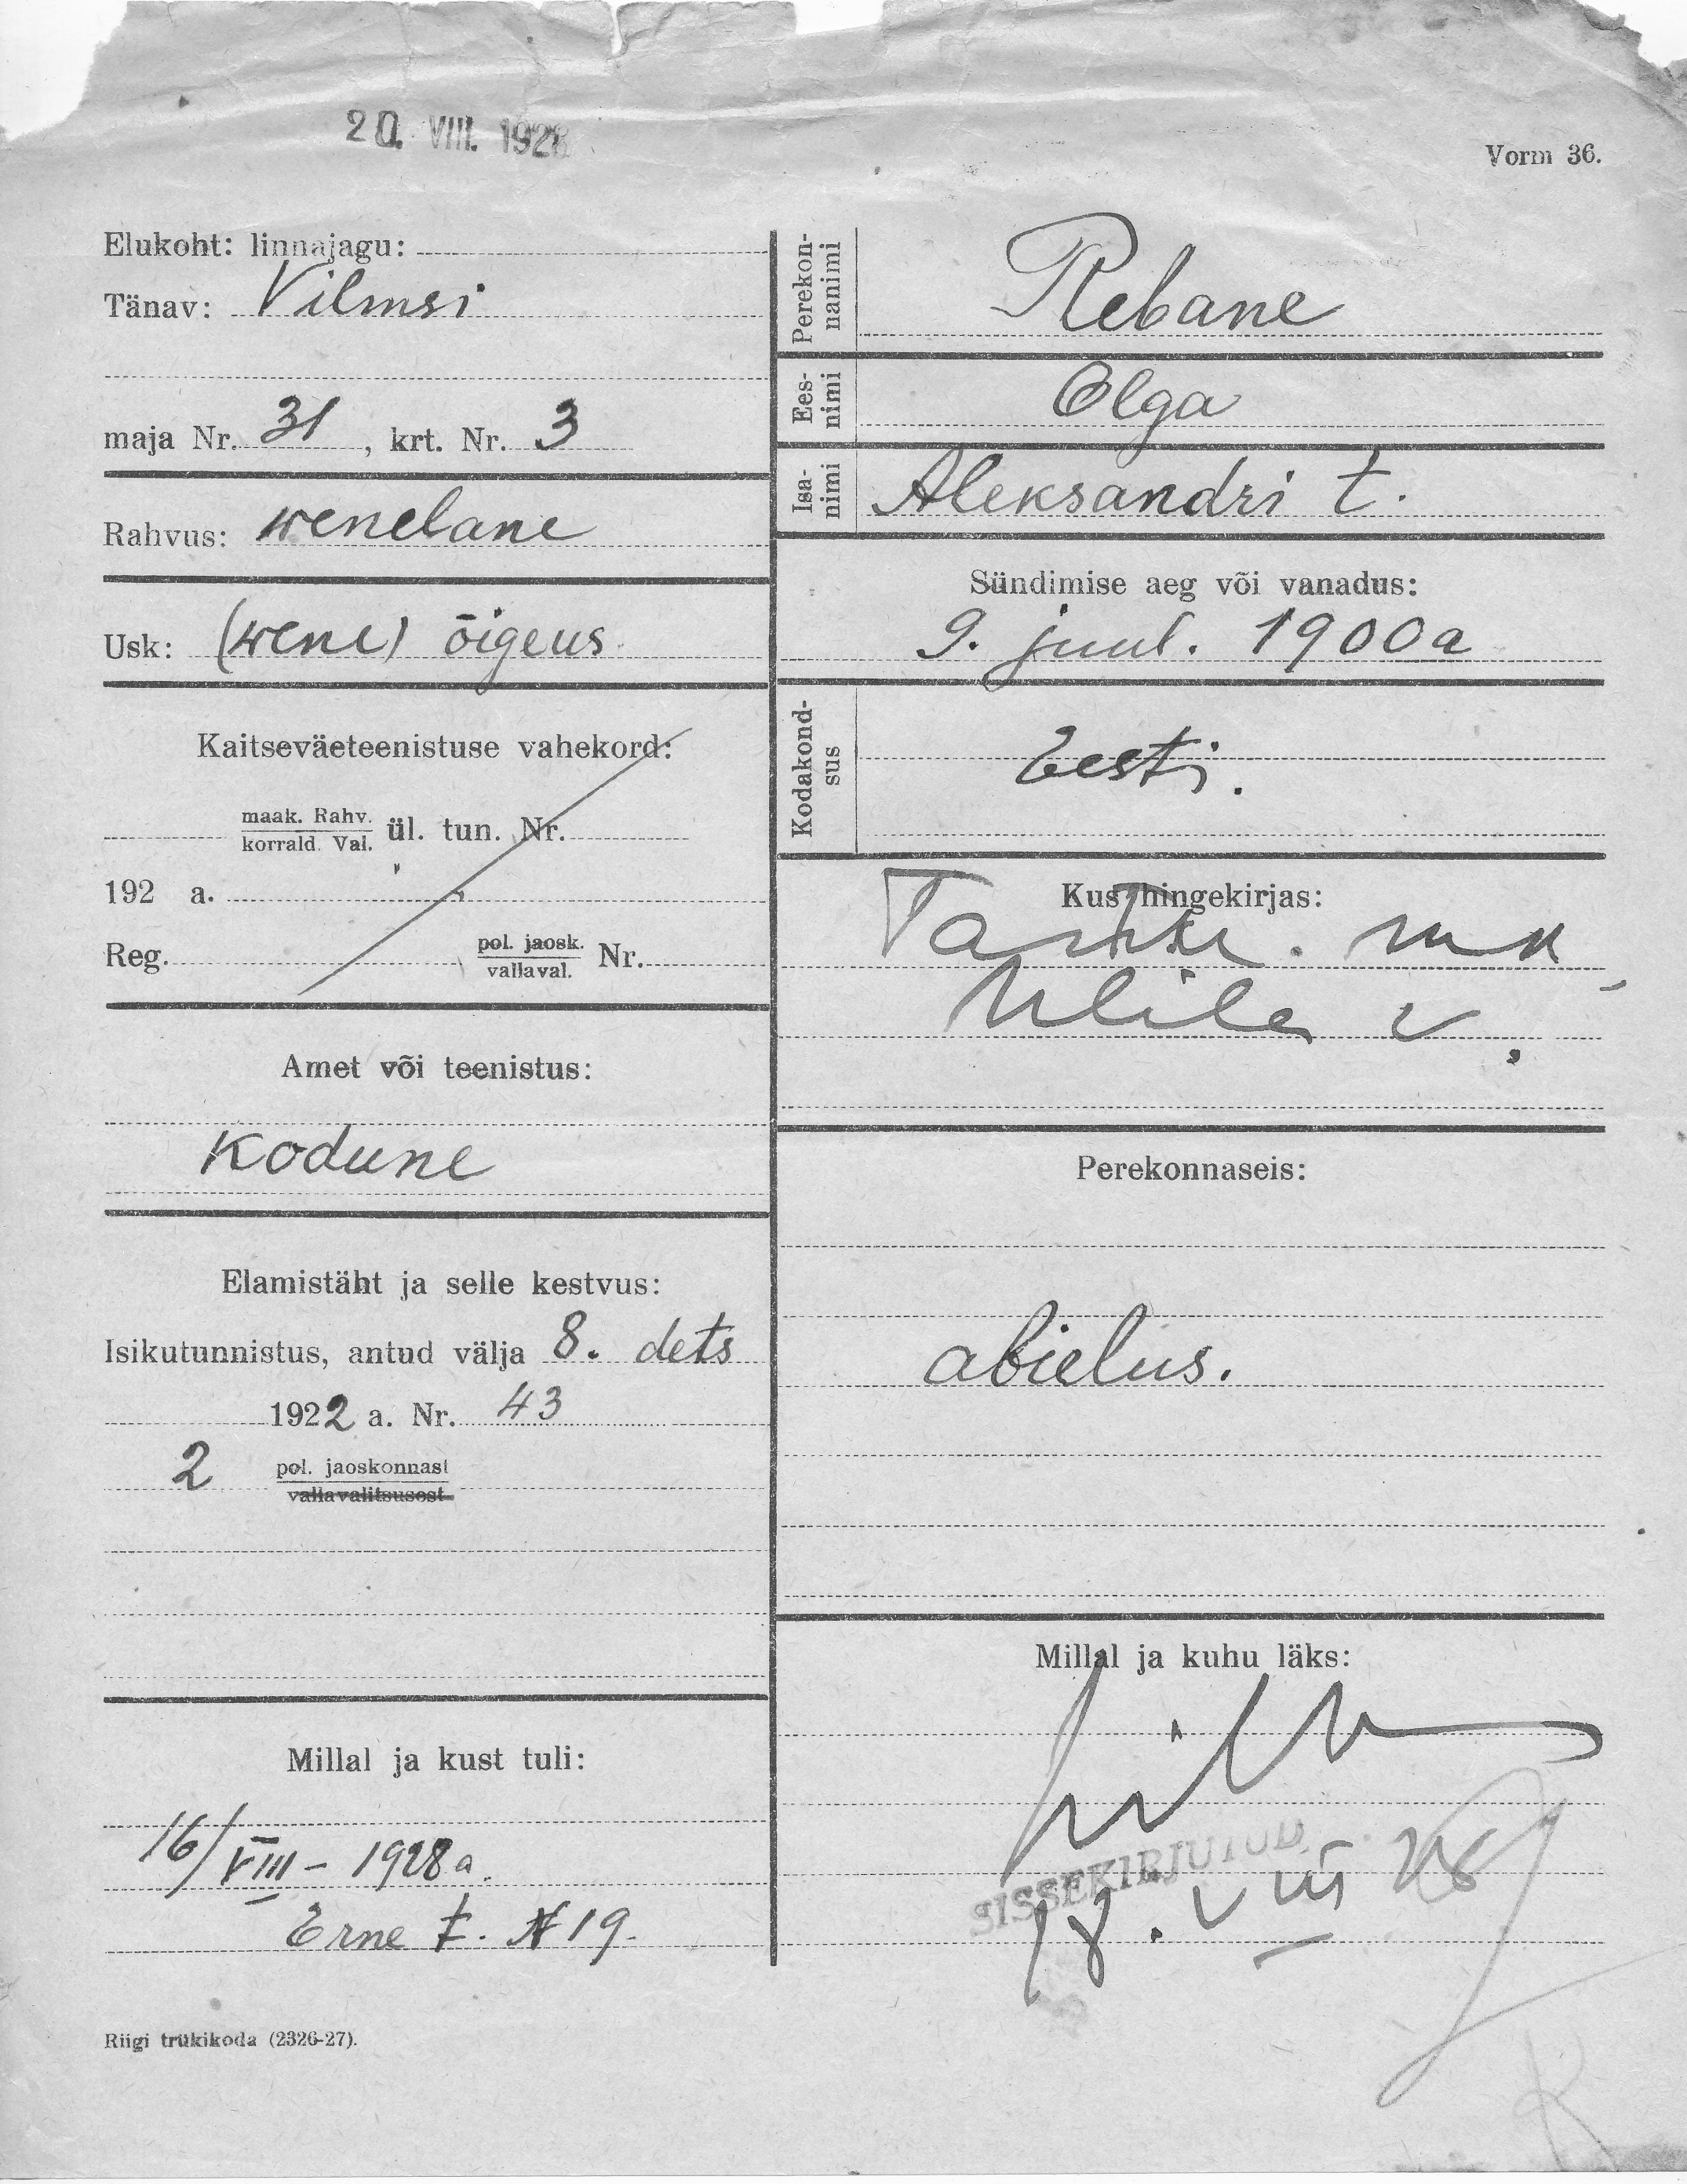 20. VIII. 1928
Vorm 36.
Elukoht: linnajagu:
Tänav: Vilmsi
maja Nr. 31, krt. Nr. 3
Rahvus: wenelane
Usk: (wene) õigeus
Kaitseväeteenistuse vahekord:
maak. Rahv.
korrald. Val. ül. tun. Nr.
192 a.
Reg. pol. jaosk.
vallaval. Nr.
Amet või teenistus:
Kodune
Elamistäht ja selle kestvus:
Isikutunnistus, antud välja 8. dets
1922 a. Nr. 43
2 pol. jaoskonnast
vallavalitsusest
Millal ja kust tuli:
16/VIII – 1928 a.
Erne t. № 19.
Riigi trükikoda (2326-27).
Perekon-
nanimi
Rebane
Ees-
nimi
Olga
Isa-
nimi
Aleksandri t.
Sündimise aeg või vanadus:
9. juul. 1900 a
Kodakond-
sus
Eesti.
Kus hingekirjas:
mk
v.
Perekonnaseis:
abielus.
Millal ja kuhu läks:
SISSEKIRJUTUD
18. VIII 28